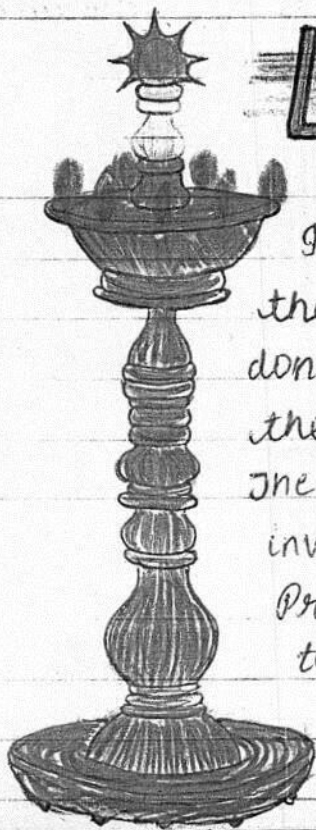 the
don
the
The
inv
Pr
t